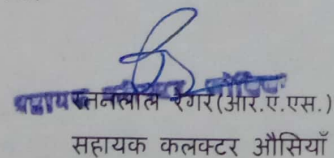 रतनलाल रेगर(आर.ए.एस.)
सहायक कलक्टर औसियाँ